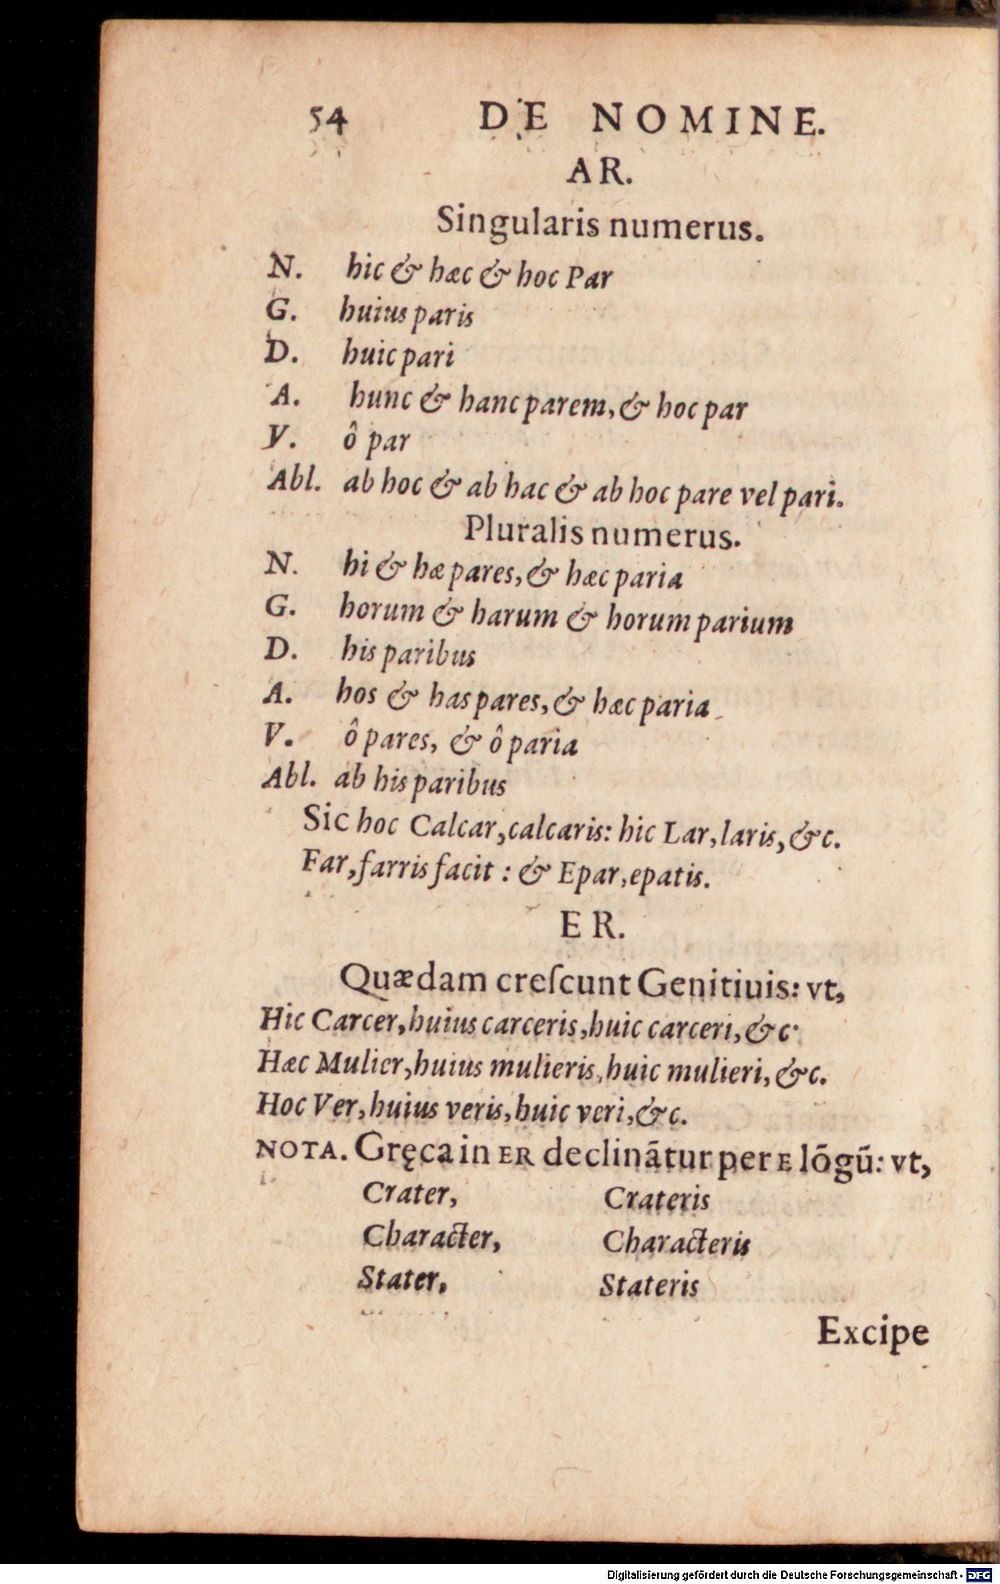 54 DE NOMINE.
AR.
Singularis numerus.
N. hic & hæc & hoc Par
G. huius paris
D. huic pari
A. hunc & hanc parem, & hoc par
V. ô par
Abl. ab hoc & ab hac & ab hoc pare vel pari.
Pluralis numerus.
N. hi & hæ pares, & hæc paria
G. horum & harum & horum parium
D. his paribus
A. hos & has pares, & hæc paria
V. ô pares, & ô paria
Abl. ab his paribus
Sic hoc Calcar, calcaris: hic Lar, laris, &c.
Far, farris facit : & Epar, epatis.
ER.
Quædam creſcunt Genitiuis: vt,
Hic Carcer, huius carceris, huic carceri, &c.
Hæc Mulier, huius mulieris, huic mulieri, &c.
Hoc Ver, huius veris, huic veri, &c.
NOTA. Gręca in ER declinātur per E lōgū: vt,
Crater, Crateris
Character, Characteris
Stater, Stateris
Excipe
Digitalisierung gefördert durch die Deutsche Forschungsgemeinschaft - DFG